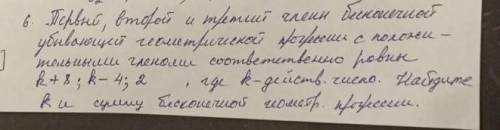 6. Первый, второй и третий члены бесконечной
убивающей геометрической прогрессии с положи-
тельными членами соответственно равны
k+8; k-4; 2 , где k-действ. число. Найдите
k и сумму бесконечной геометр. прогрессии.